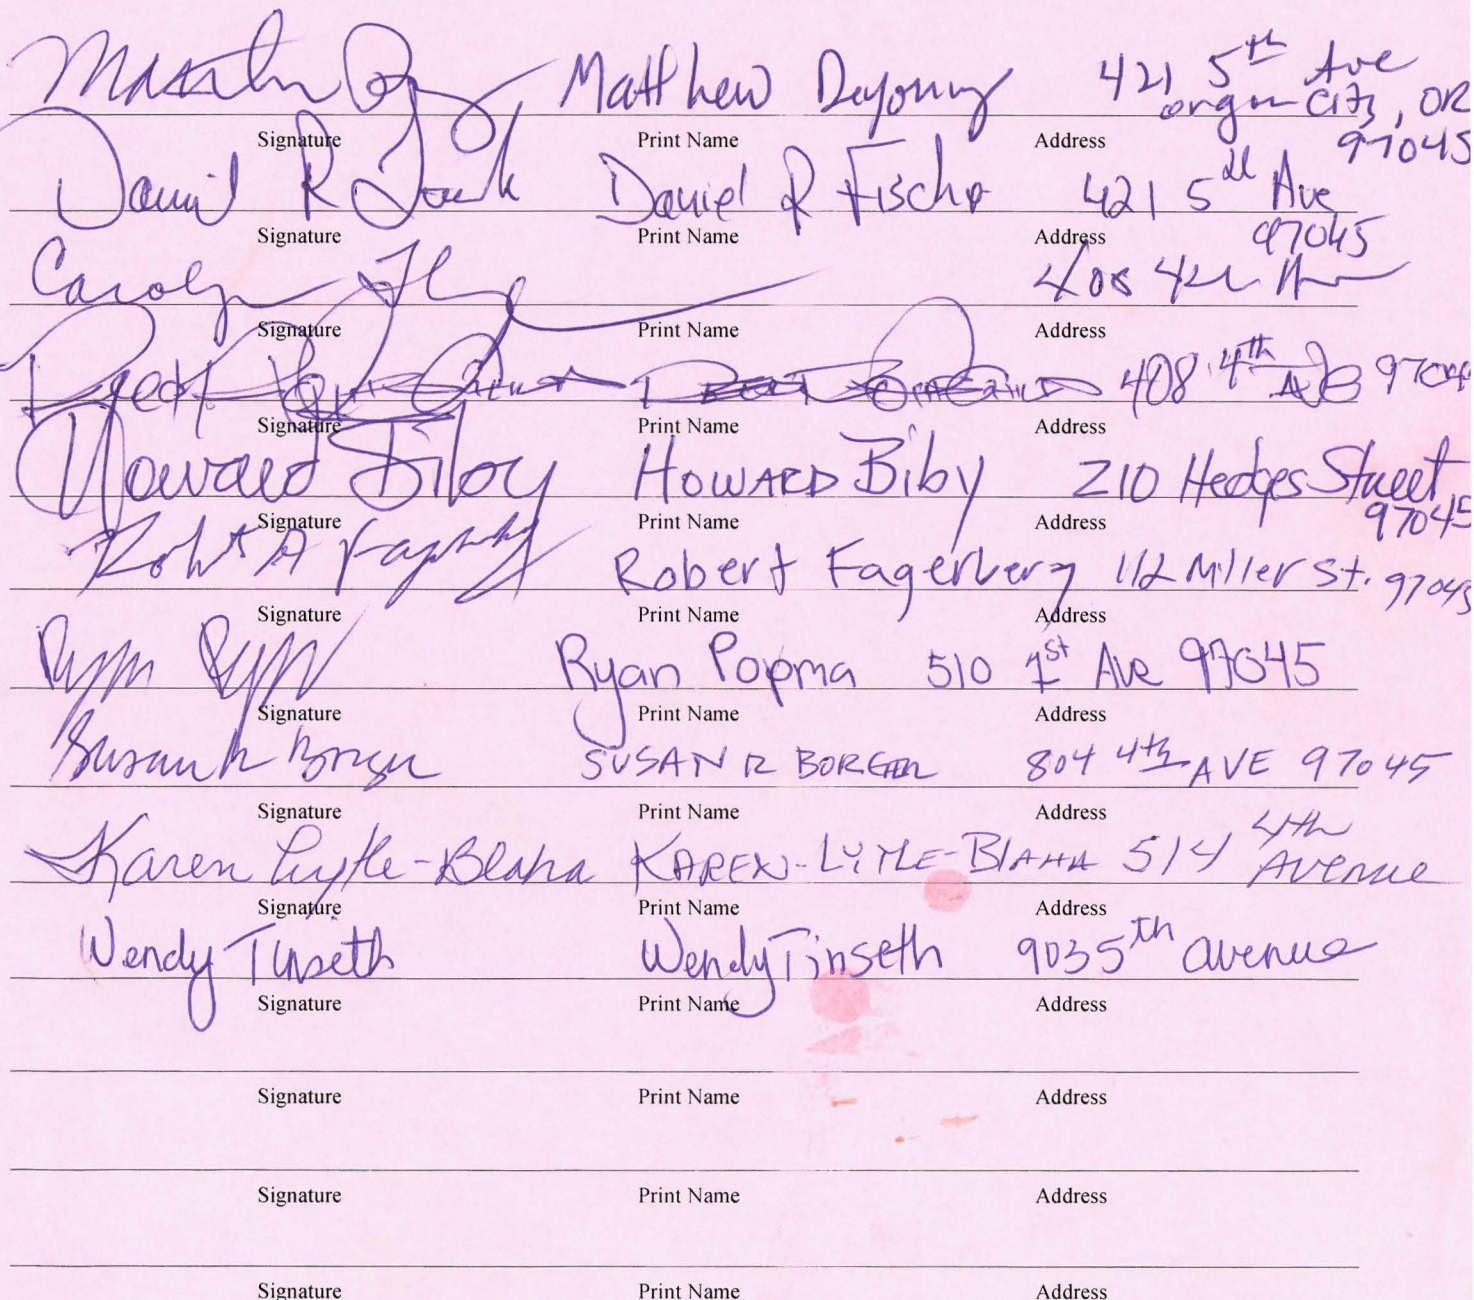 Matthew Deyoung 421 5th Ave
oregon city, OR
97045
Signature Print Name Address
Daniel R Daniel R Fischer 421 5th Ave
97045
Signature Print Name Address
Carolyn 408 4th Ave
Signature Print Name Address
408 4th Ave 97045
Signature Print Name Address
Howard Biby HOWARD Biby 210 Hedges Street,
97045
Signature Print Name Address
Robt A Fagerberg Robert Fagerberg 112 Miller St. 97045
Signature Print Name Address
Ryan Popma 510 1st Ave 97045
Signature Print Name Address
Susan R Borger SUSAN R BORGER 804 4th AVE 97045
Signature Print Name Address
Karen Lytle-Blaha KAREN-LYTLE-BLAHA 514 4th Avenue
Signature Print Name Address
Wendy Tinseth Wendy Tinseth 903 5th avenue
Signature Print Name Address
Signature Print Name Address
Signature Print Name Address
Signature Print Name Address